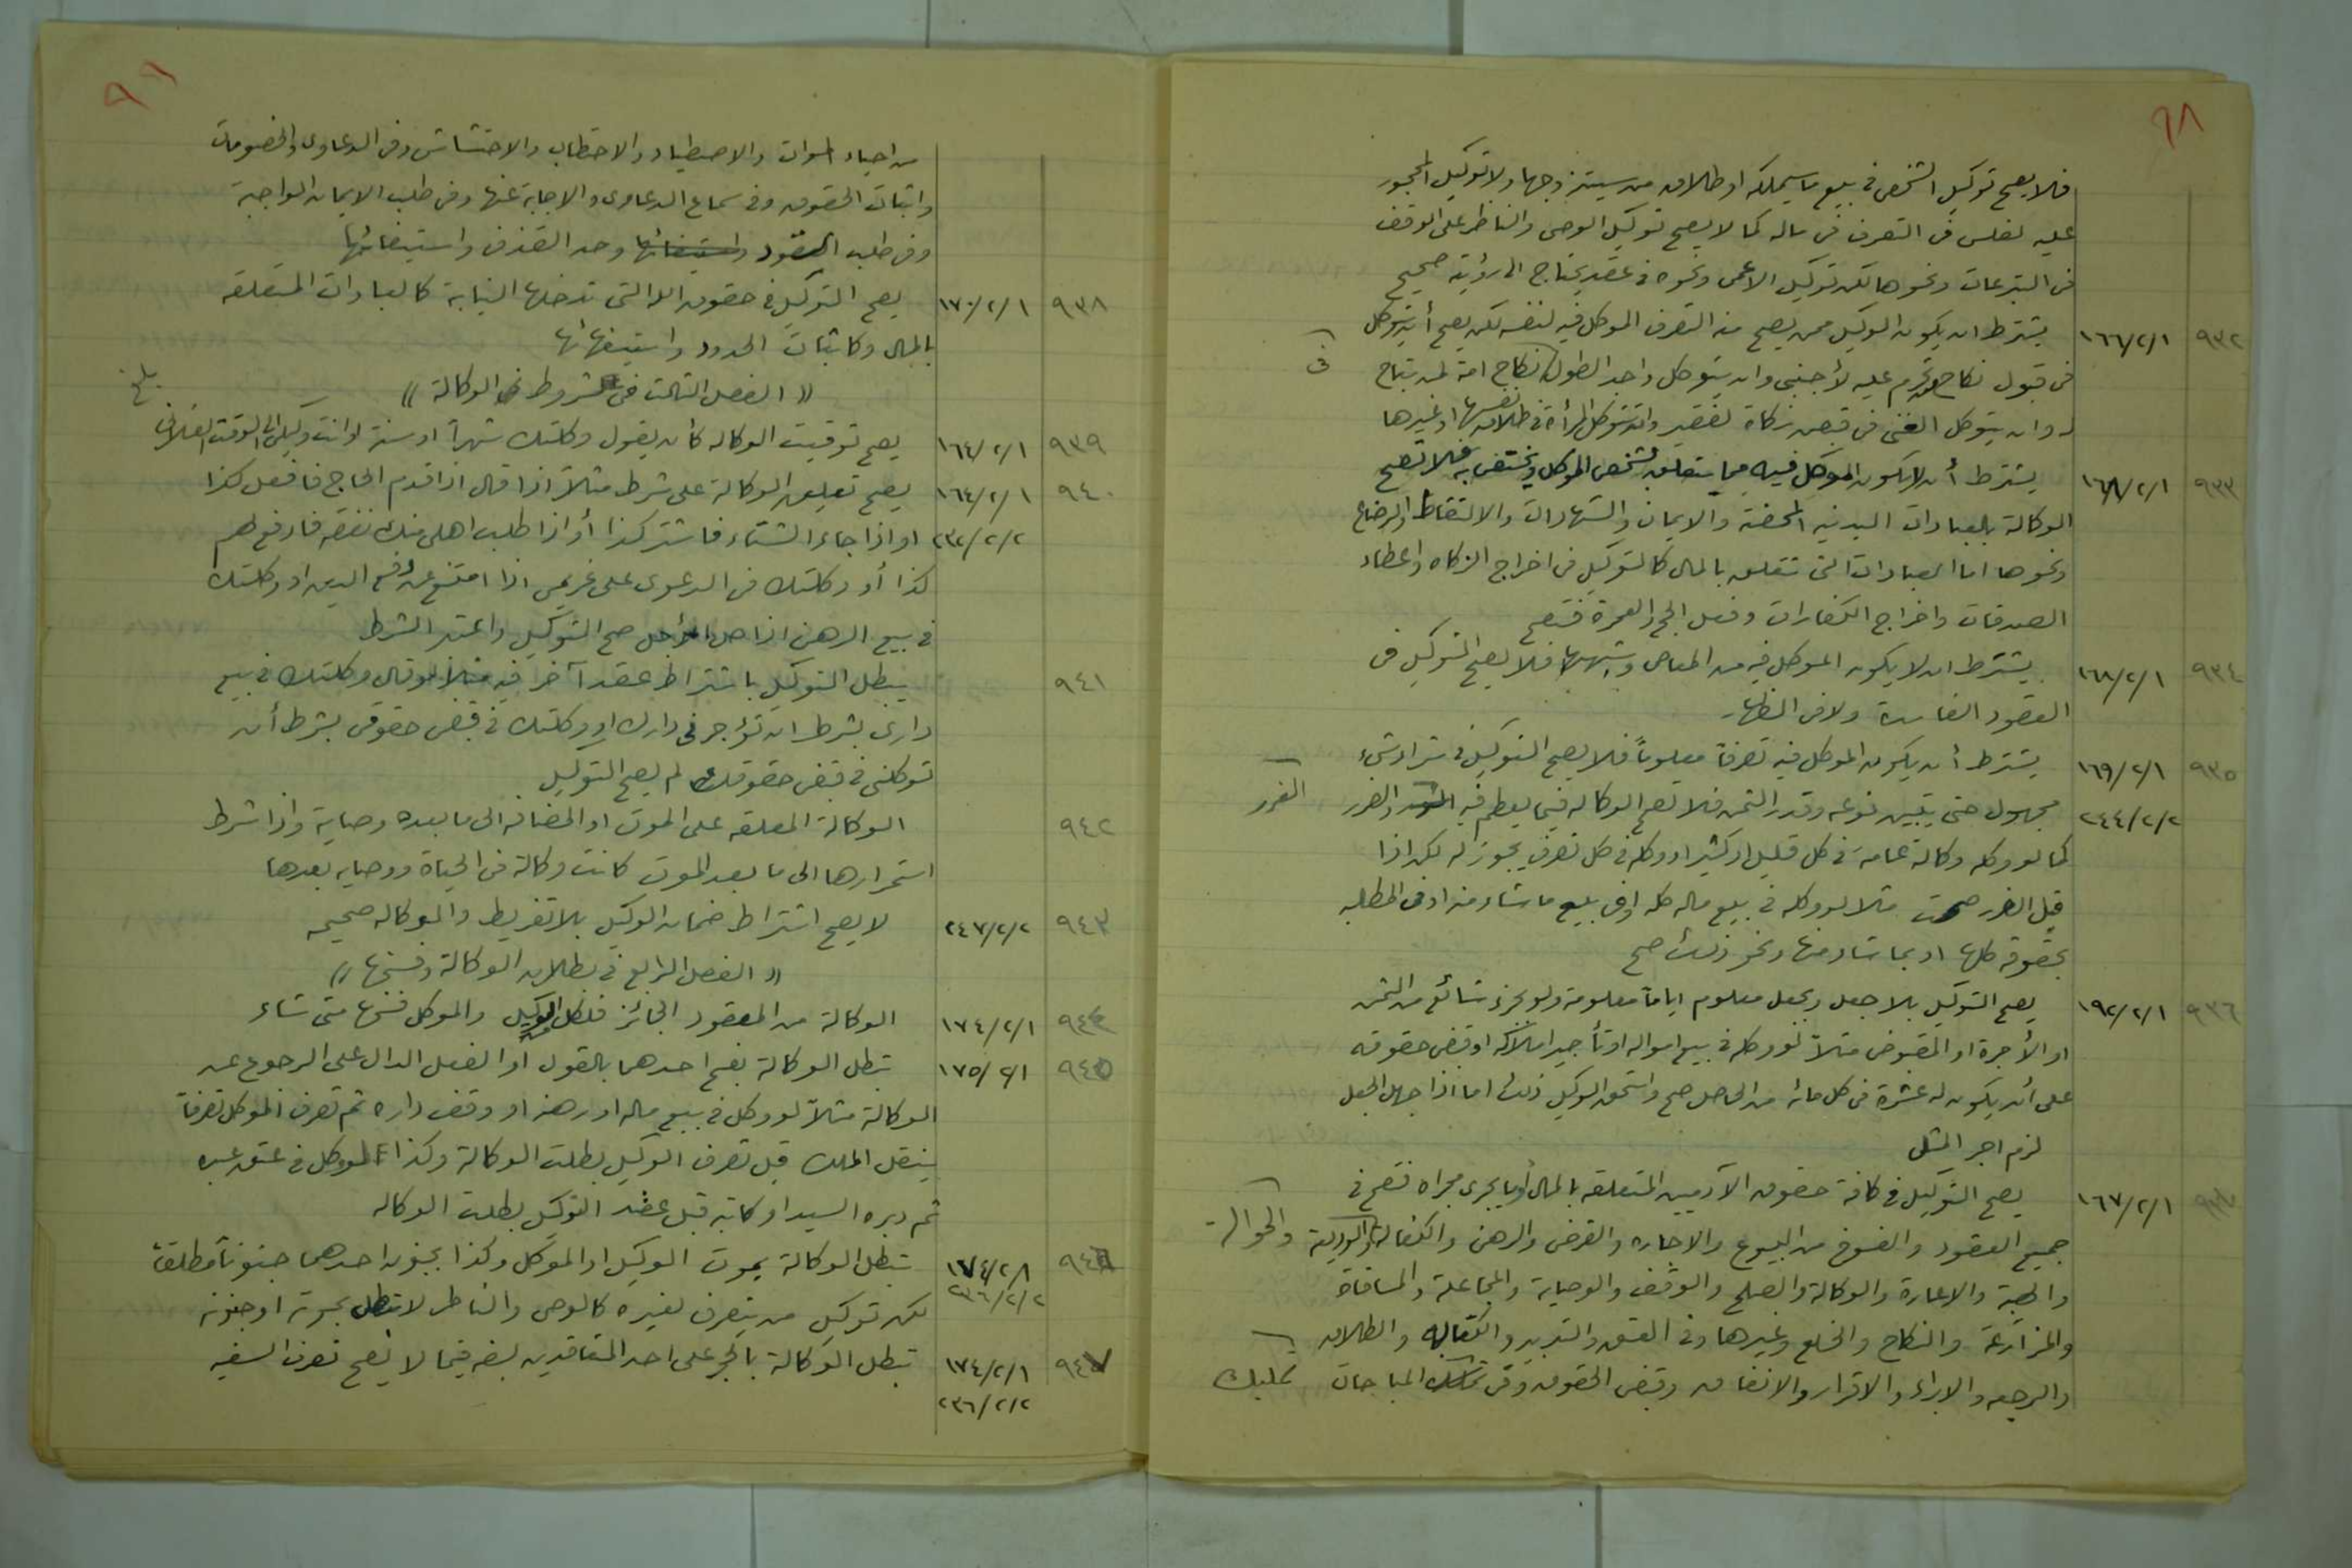 ٩٨
فلا يصح توكيل الشخص في بيع ما سيملكه او طلاق من سيتزوجها ولا توكيل المحجور
عليه لفلس في التصرف في ماله كما لا يصح توكيل الوصى والناظر على الوقف
في التبرعات ونحوها لكن توكيل الاعمى ونحوه في عقد يحتاج الى رؤية صحيح
٩٣٢ ١٦٦/٢/١ يشترط ان يكون الوكيل ممن يصح منه التصرف الموكل فيه لنفسه لكن يصح أن يتوكل
في قبول نكاح تحرم عليه لأجنبي وان يتوكل واجد الطول في نكاح امة لمن تباح
له وان يتوكل الغني في قبض زكاة لفقير وان تتوكل المرأة في طلاق نفسها او غيرها
٩٣٣ ١٦٨/٢/١ يشترط أن لا يكون الموكل فيه مما يتعلق بشخص الموكل ويختص به فلا تصح
الوكالة بالعبادات البدنيه المحضة والايمان والشهادات والالتقاط والرضاع
ونحوها اما العبادات التي تتعلق بالمال كالتوكيل في اخراج الزكاه واعطاء
الصدقات واخراج الكفارات وفعل الحج والعمرة فتصح
٩٣٤ ١٦٨/٢/١ يشترط ان لا يكون الموكل فيه من المعاصي وشبهها فلا يصح التوكيل في
العقود الفاسدة ولا في الظهار
٩٣٥ ١٦٩/٢/١ يشترط أن يكون الموكل فيه تصرفاً معلوماً فلا يصح التوكيل في شراء شيء
٢٤٤/٢/٢ مجهول حتى يتبين نوعه وقدر الثمن فلا تصح الوكاله فيما يعظم فيه الغرر والضرر
كما لو وكله وكالة عامة في كل قليل او كثير او وكله في كل تصرف يجوز له لكن اذا
قل الغرر صحت مثلا لو وكله في بيع ماله كله او في بيع ما شاء منه او في المطالبه
بحقوقه كلها او بما شاء منها ونحو ذلك صح
٩٣٦ ١٩٢/٢/١ يصح التوكيل بلا جعل وبجعل معلوم اياماً معلومة ولو بجزء شائع من الثمن
او الأجرة او المقبوض مثلاً لو وكله في بيع امواله او تأجير املاكه او قبض حقوقه
على أن يكون له عشرة في كل مائه من الحاصل صح واستحق الوكيل ذلك اما اذا جهل الجعل
لزم اجر المثل
٩٣٧ ١٦٧/٢/١ يصح التوكيل في كافة حقوق الآدميين المتعلقه بالمال أو ما يجرى مجراه فتصح في
جميع العقود والفسوخ من البيوع والاجاره والقرض والرهن والكفالة والحوالة والوديعة
والهبة والاعارة والوكالة والصلح والوقف والوصاية والجعاله والمساقاة
والمزارعة والنكاح والخلع وغيرها وفي العتق والتدبير والكتابه والطلاق
والرجعه والابراء والاقرار والانفاق وقبض الحقوق وفي تمليك المباحات
٩٩
من احياء الموات والاصطياد والاحتطاب والاحتشاش وفي الدعاوى والخصومات
واثبات الحقوق وفي سماع الدعاوى والاجابة عنها وفي طلب الايمان الواجبة
وفي طلب القود واستيفائها وحد القذف واستيفائها
٩٣٨ ١٧٠/٢/١ يصح التوكيل في حقوق الله التي تدخلها النيابة كالعبادات المتعلقه
بالمال وكاثبات الحدود واستيفائها
(( الفصل الثالث في شروط الوكالة ))
٩٣٩ ١٦٤/٢/١ يصح توقيت الوكاله كأن يقول وكلتك شهراً او سنة او انت وكيلي الى الوقت الفلاني
٩٤٠ ١٦٤/٢/١ يصح تعليق الوكالة على شرط مثلاً اذا قال اذا قدم الحاج فافعل كذا
٢٣٢/٢/٢ او اذا جاء الشتاء فاشتر كذا أو اذا طلب اهلي منك نفقه فادفع لهم
كذا أو وكلتك في الدعوى على غريمي اذا امتنع عن دفع الدين او وكلتك
في بيع الرهن اذا حل الأجل صح التوكيل واعتبر الشرط
٩٤١ يبطل التوكيل باشتراط عقد آخر فيه مثلا لو قال وكلتك في بيع
داري بشرط ان تؤجرني دارك او وكلتك في قبض حقوقي بشرط أن
توكلني في قبض حقوقك لم يصح التوكيل
٩٤٢ الوكالة المعلقه على الموت او المضافه الى ما بعده وصاية واذا شرط
استمرارها الى ما بعد الموت كانت وكالة في الحياة ووصايه بعدها
٩٤٣ ٢٤٧/٢/٢ لا يصح اشتراط ضمان الوكيل بلا تفريط والوكاله صحيحه
(( الفصل الرابع في بطلان الوكالة وفسخها ))
٩٤٤ ١٧٤/٢/١ الوكالة من العقود الجائز فلكل من الوكيل والموكل فسخها متى شاء
٩٤٥ ١٧٥/٢/١ تبطل الوكالة بفسخ احدهما بالقول او الفعل الدال على الرجوع عن
الوكالة مثلاً لو وكل في بيع ماله او رهنه او وقف داره ثم تصرف الموكل تصرفاً
ينقل الملك قبل تصرف الوكيل بطلت الوكالة وكذا لو وكل في عتق عبده
ثم دبره السيد او كاتبه قبل عقد الوكيل بطلت الوكاله
٩٤٦ ١٧٤/٢/١ تبطل الوكالة بموت الوكيل او الموكل وكذا بجنون احدهما جنوناً مطلقاً
٢٣٦/٢/٢ لكن توكيل من يتصرف لغيره كالوصى والناظر لا تبطل بموته او جنونه
٩٤٧ ١٧٤/٢/١ تبطل الوكالة بالحجر على احد المتعاقدين لسفه فيما لا يصح تصرف السفيه
٢٣٦/٢/٢